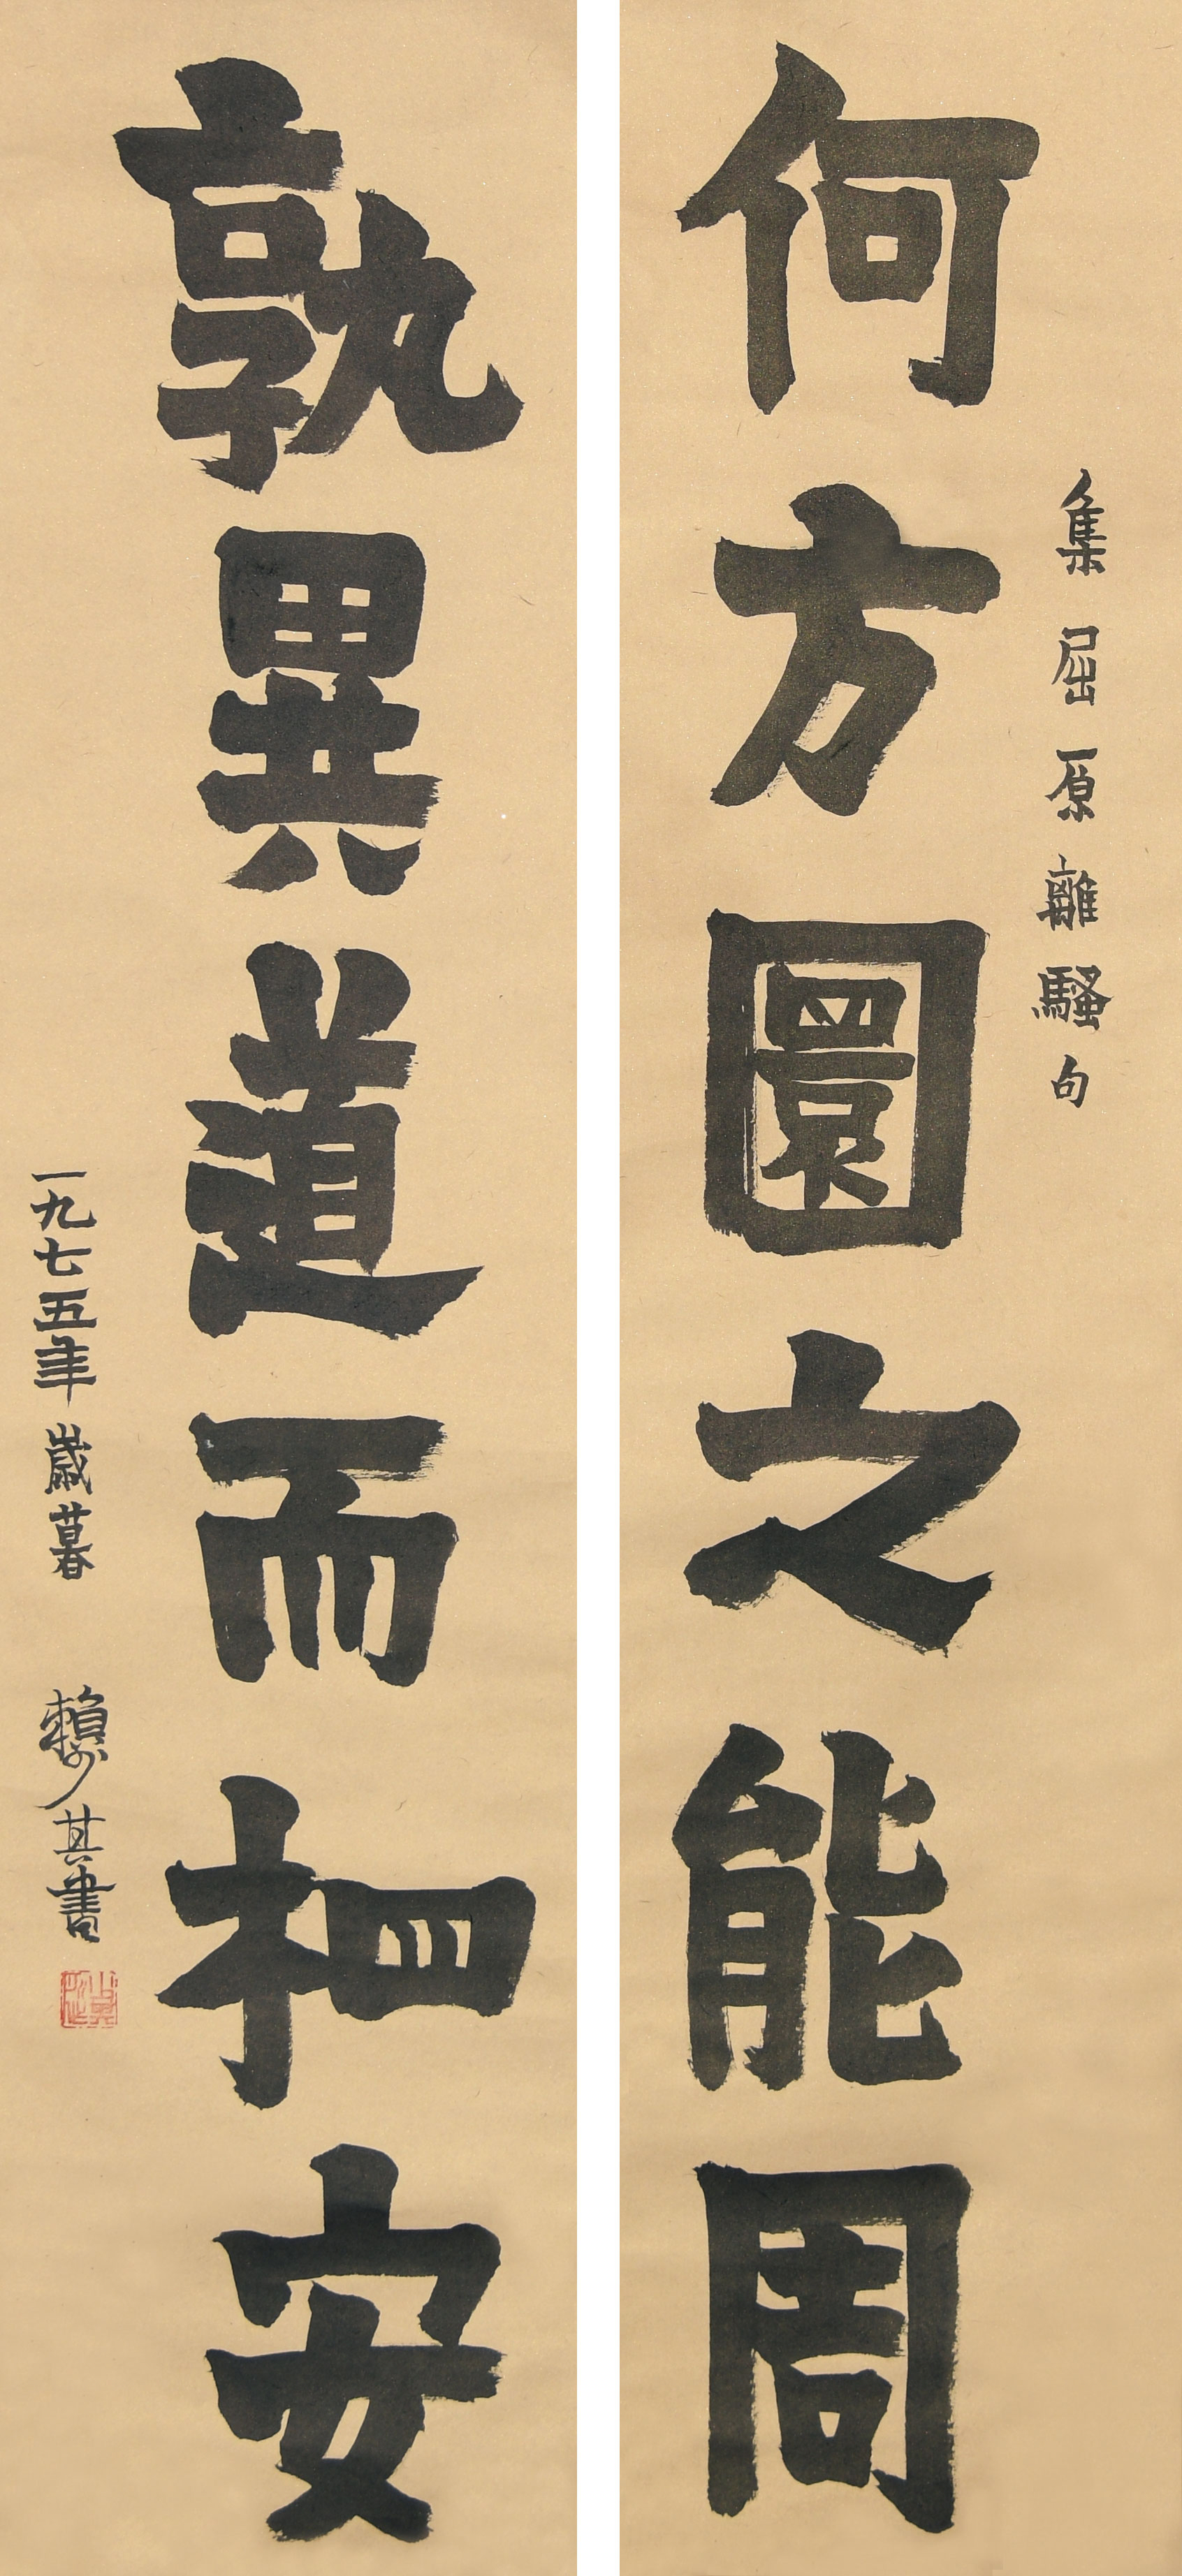 集屈原離騷句
何方圜之能周
孰異道而相安
一九七五年歲暮 賴少其書